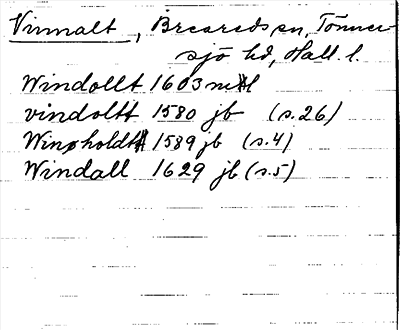 Vinnalt, Breareds sn, Tönner-
sjö hd, Hall. l.
Windollt 1603 mtl
vindoltt 1580 jb (s. 26)
Winøholdt 1589 jb (s. 4)
Windall 1629 jb (s. 5)